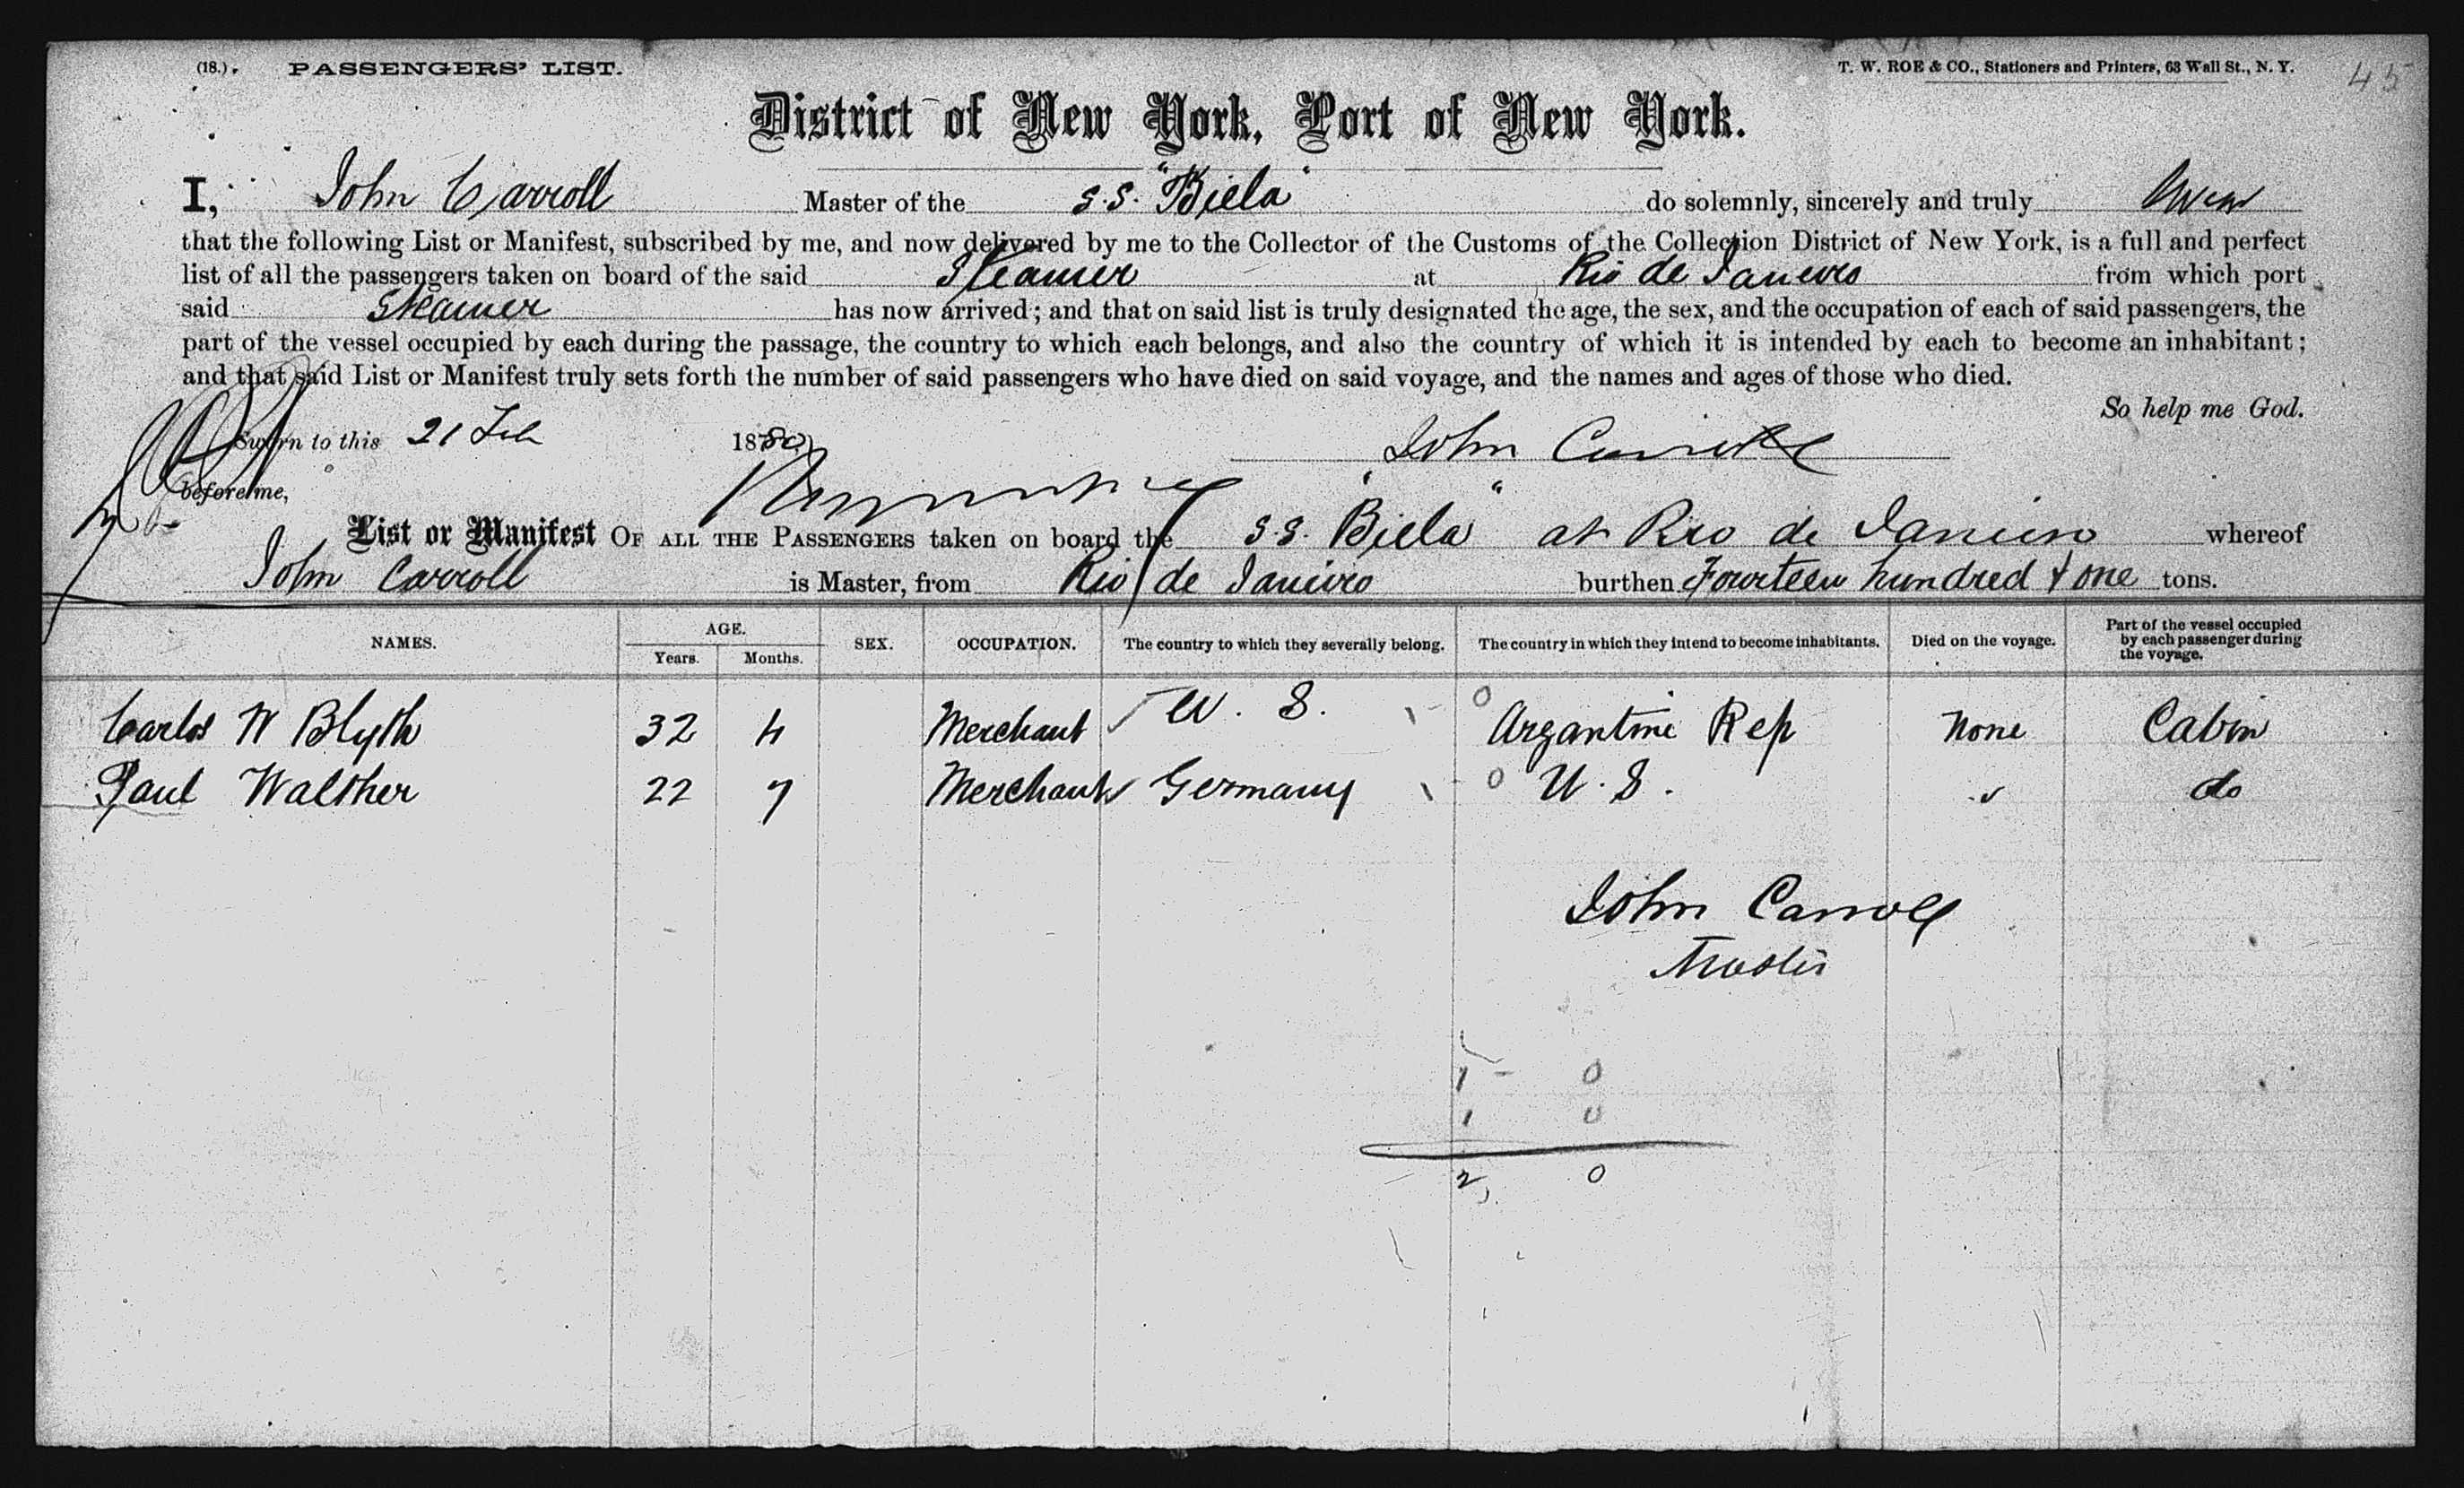 (18.) PASSENGERS' LIST. T. W. ROE & CO., Stationers and Printers, 63 Wall St., N. Y. 45
District of New York, Port of New York.
I, John Carroll Master of the S.S. "Biela" do solemnly, sincerely and truly swear
that the following List or Manifest, subscribed by me, and now delivered by me to the Collector of the Customs of the Collection District of New York, is a full and perfect
list of all the passengers taken on board of the said Steamer at Rio de Janeiro from which port
said Steamer has now arrived; and that on said list is truly designated the age, the sex, and the occupation of each of said passengers, the
part of the vessel occupied by each during the passage, the country to which each belongs, and also the country of which it is intended by each to become an inhabitant;
and that said List or Manifest truly sets forth the number of said passengers who have died on said voyage, and the names and ages of those who died.
So help me God.
Sworn to this 21 Feb 1880 John Carroll
before me,
List or Manifest OF ALL THE PASSENGERS taken on board the S.S. "Biela" at Rio de Janeiro whereof
John Carroll is Master, from Rio de Janeiro burthen Fourteen hundred & one tons.
NAMES. AGE. Years. Months. SEX. OCCUPATION. The country to which they severally belong. The country in which they intend to become inhabitants. Died on the voyage. Part of the vessel occupied by each passenger during the voyage.
Carlos W Blyth 32 4 Merchant U. S. 1 - 0 Argantine Rep None Cabin
Paul Walther 22 7 Merchant Germany 1 - 0 U. S. do
John Carroll
Master
1 - 0
1 0
2 0